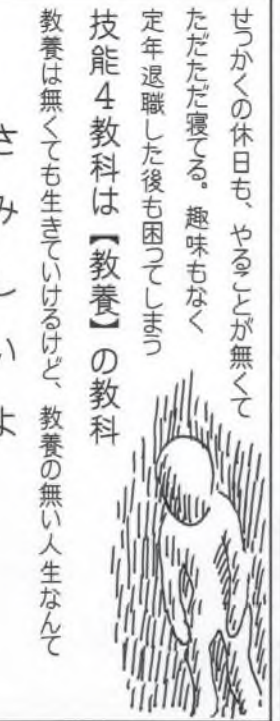 せっかくの休日も、やることが無くて
ただただ寝てる。趣味もなく
定年退職した後も困ってしまう
技能4教科は【教養】の教科
教養は無くても生きていけるけど、教養の無い人生なんて
さみしいよ